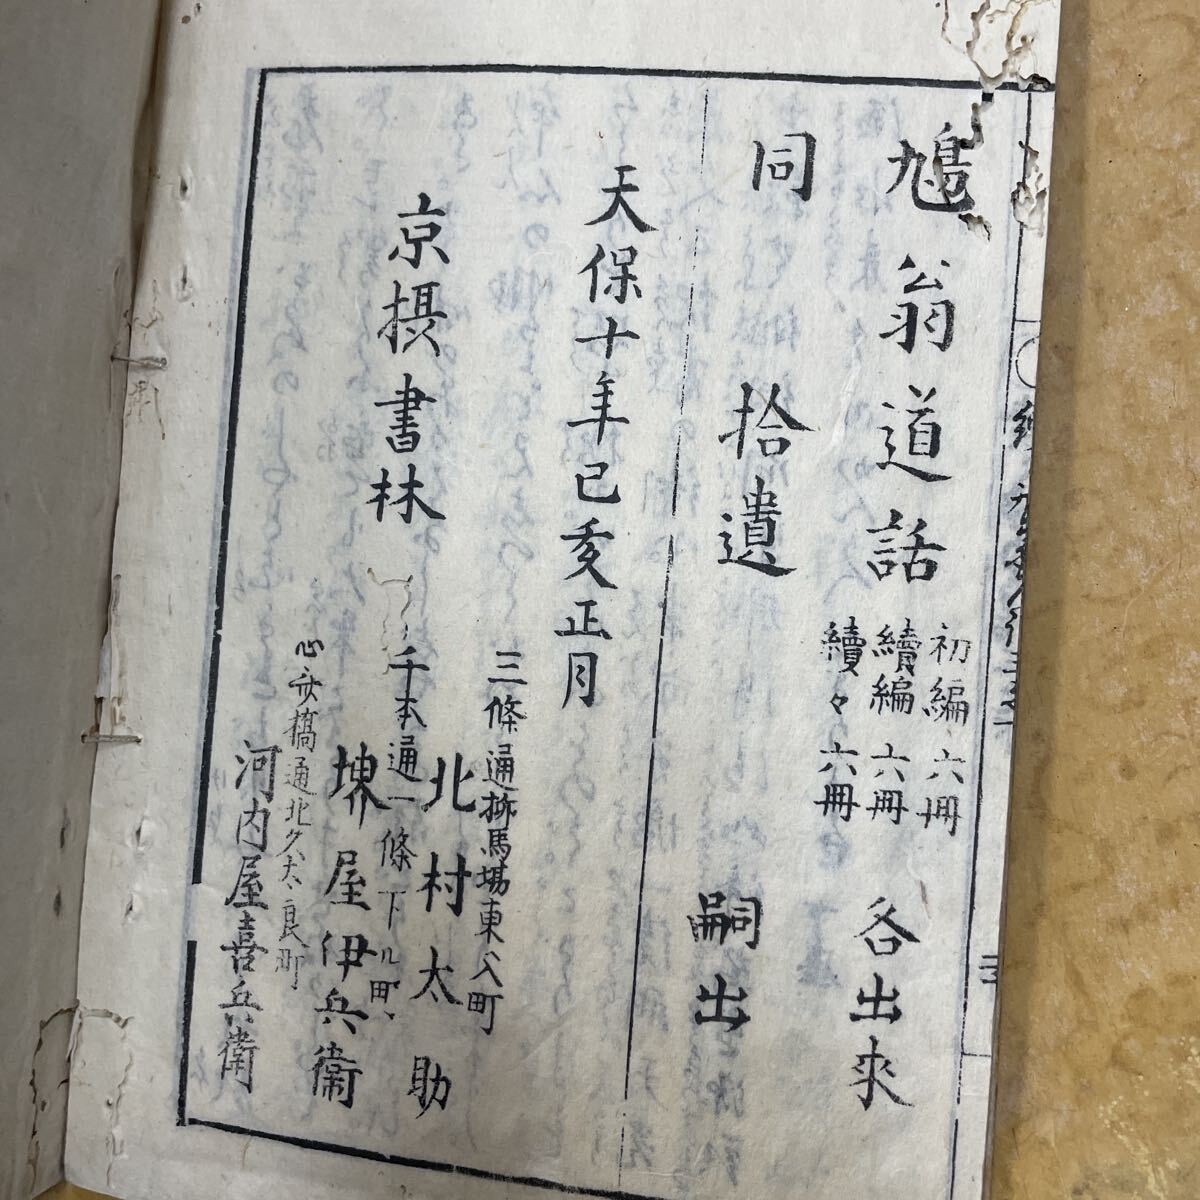 鳩翁道話
初編 六冊
續編 六冊
續々 六冊
各出來
同 拾遺 嗣出
天保十年己亥正月
京摂書林
三條通柳馬場東へ入町
北村太助
千本通一條下ル町
堺屋伊兵衛
心斎橋通北久太良町
河内屋喜兵衛